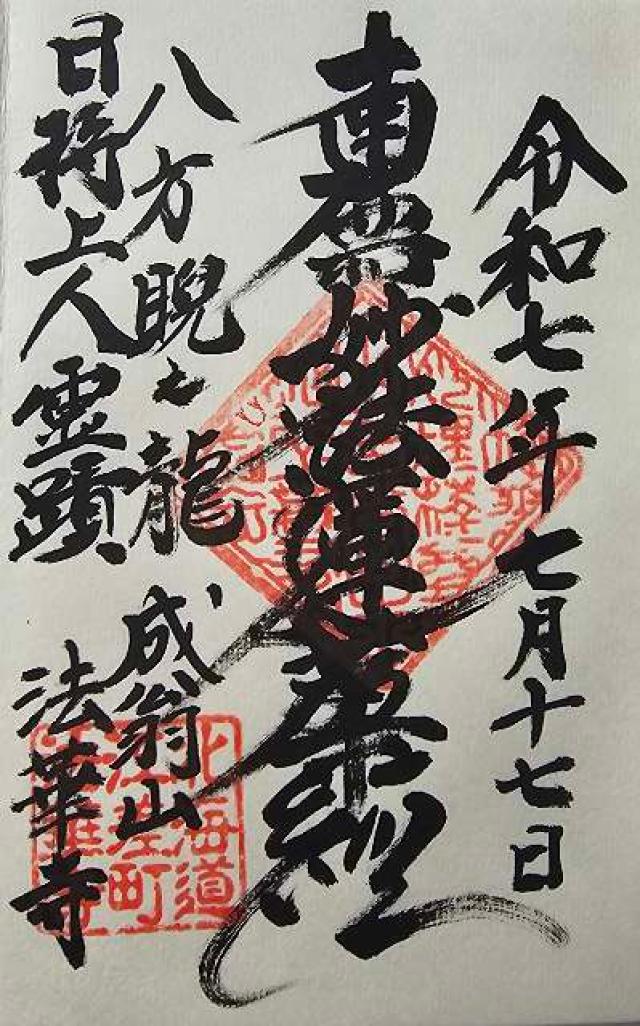 令和七年七月十七日
南無妙法蓮華経
八方睨之龍
日持上人霊蹟
成翁山
法華寺
北海道
江差町
法華寺